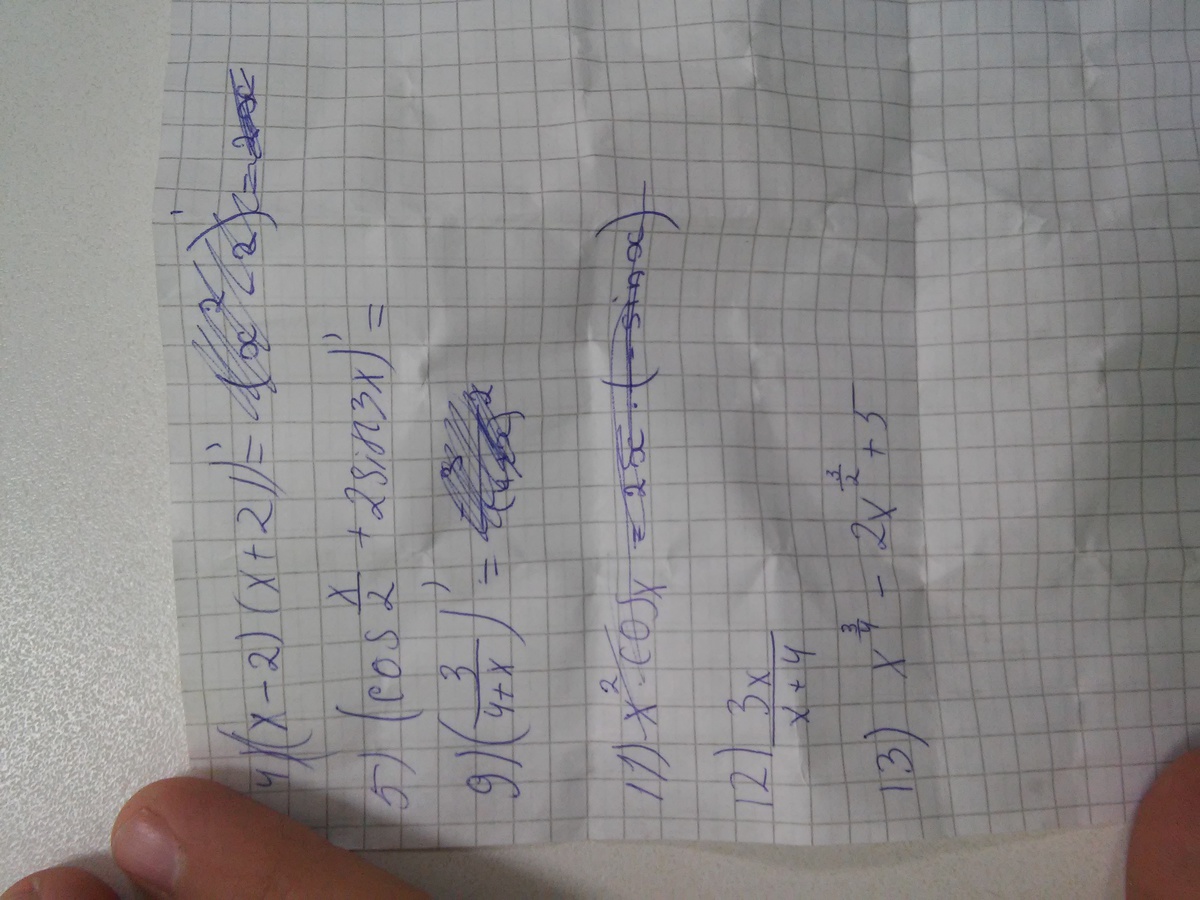 4) ((x-2)(x+2))' = (x² 2)' = 2x
5) (cos x/2 + 2sin3x)' =
9) (3/(4+x))' =
11) x² · cosx = 2x · (-sinx)
12) 3x/(x+4)
13) x^(3/4) - 2x^(3/2) + 5